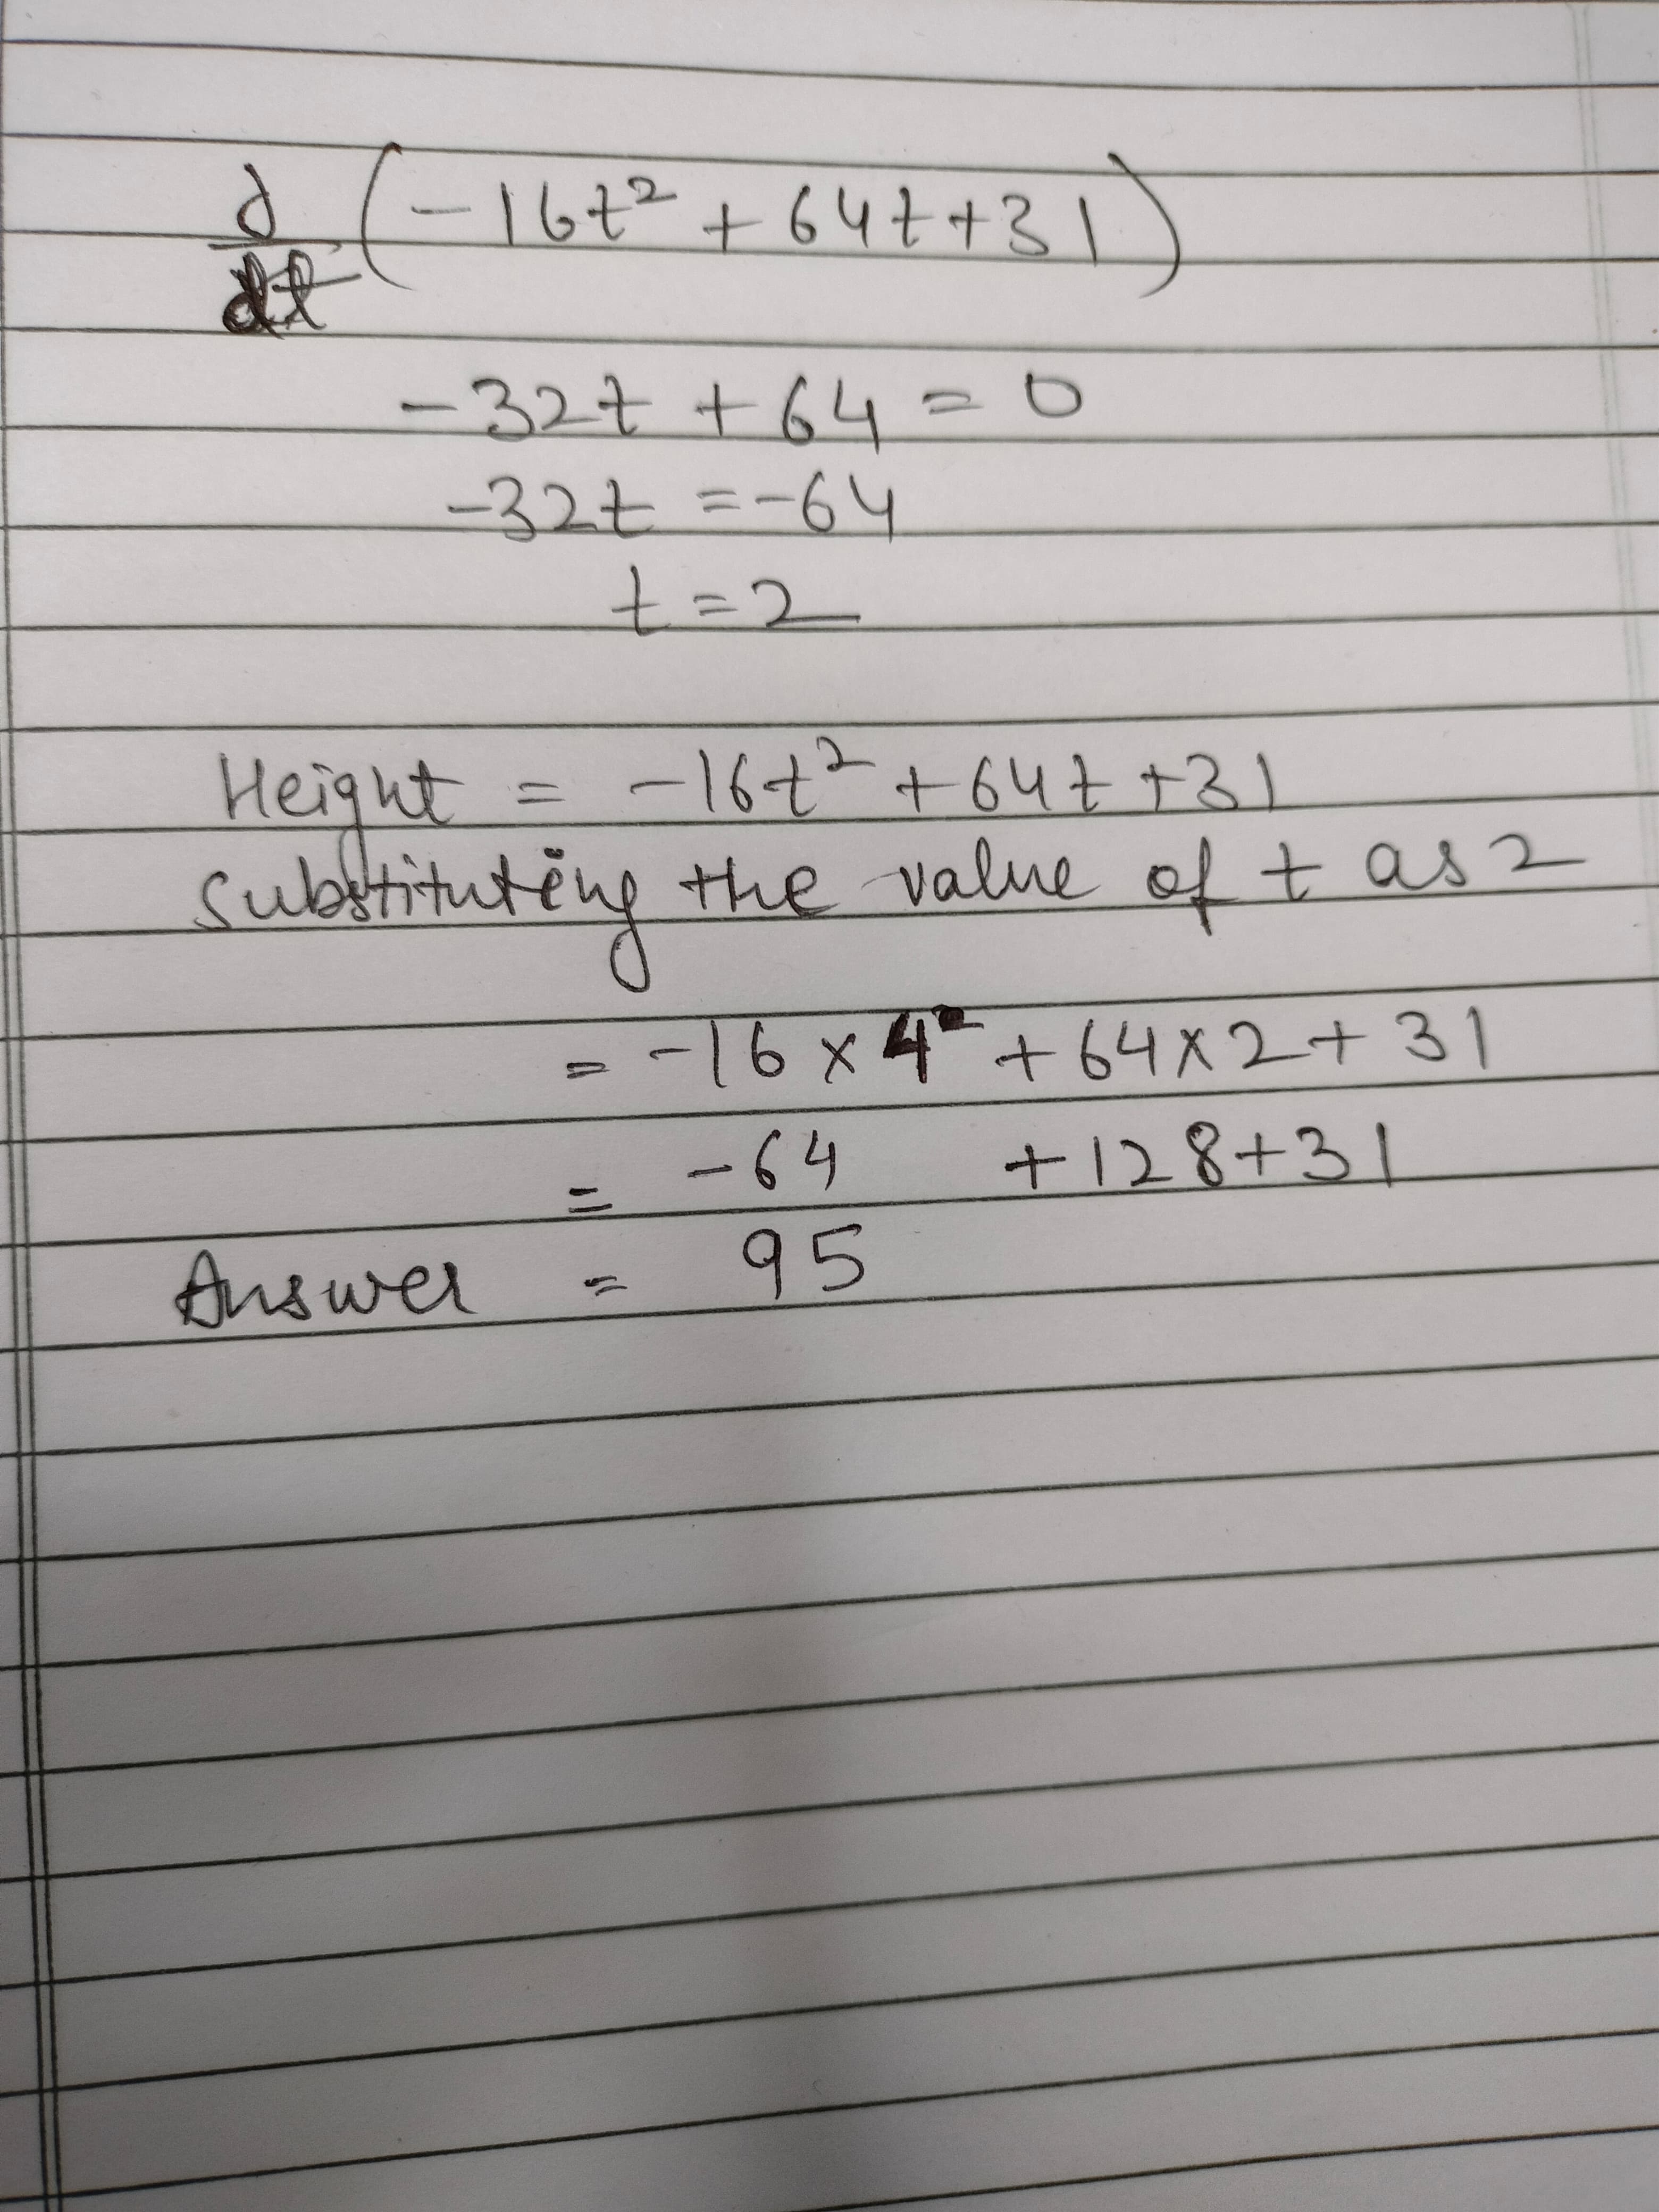 d/dt (-16t² + 64t + 31)
-32t + 64 = 0
-32t = -64
t = 2
Height = -16t² + 64t + 31
substituting the value of t as 2
= -16 × 4 + 64 × 2 + 31
= -64 + 128 + 31
Answer = 95